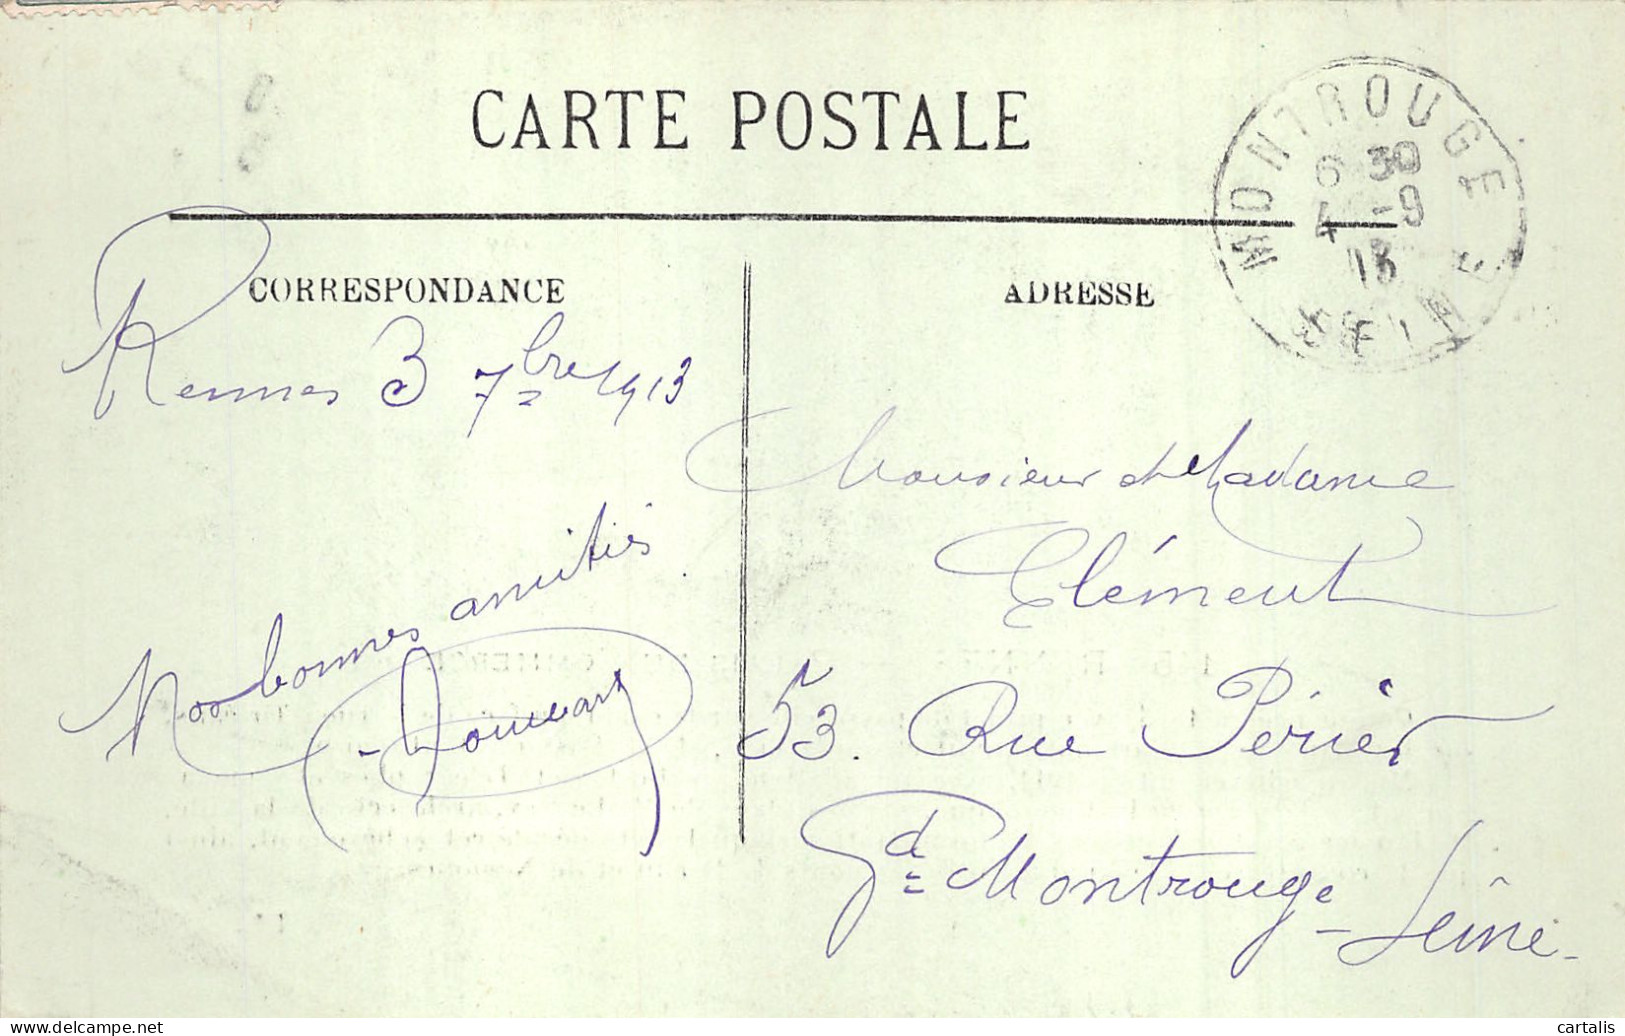 CARTE POSTALE
MONTROUGE
6 30
4 -9
13
SEINE
CORRESPONDANCE
Rennes 3 7bre 1913
Nos bonnes amitiés
ADRESSE
Monsieur et Madame
Clément
53. Rue Périer
Gd Montrouge - Seine -
cartalis
delcampe.net